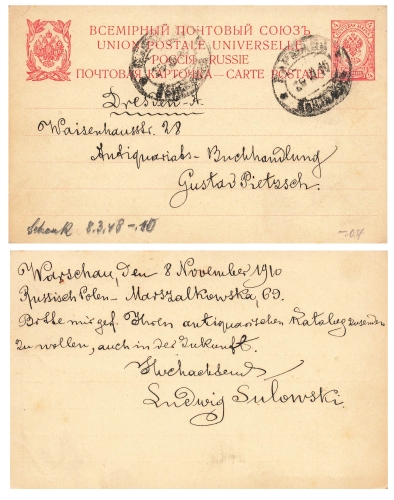 ВСЕМІРНЫЙ ПОЧТОВЫЙ СОЮЗЪ
UNION POSTALE UNIVERSELLE
РОССІЯ RUSSIE
ПОЧТОВАЯ КАРТОЧКА — CARTE POSTALE
Dresden-A.
Waisenhausstr. 28
Antiquariats-Buchhandlung
Gustav Pietzsch.
8.3.48
Warschau, den 8 November 1910
Russisch Polen - Marszalkowska 69.
Bitte mir gef. Ihren antiquarischen Katalog zusenden
zu wollen, auch in der Zukunft.
Hochachtend
Ludwig Sulowski.